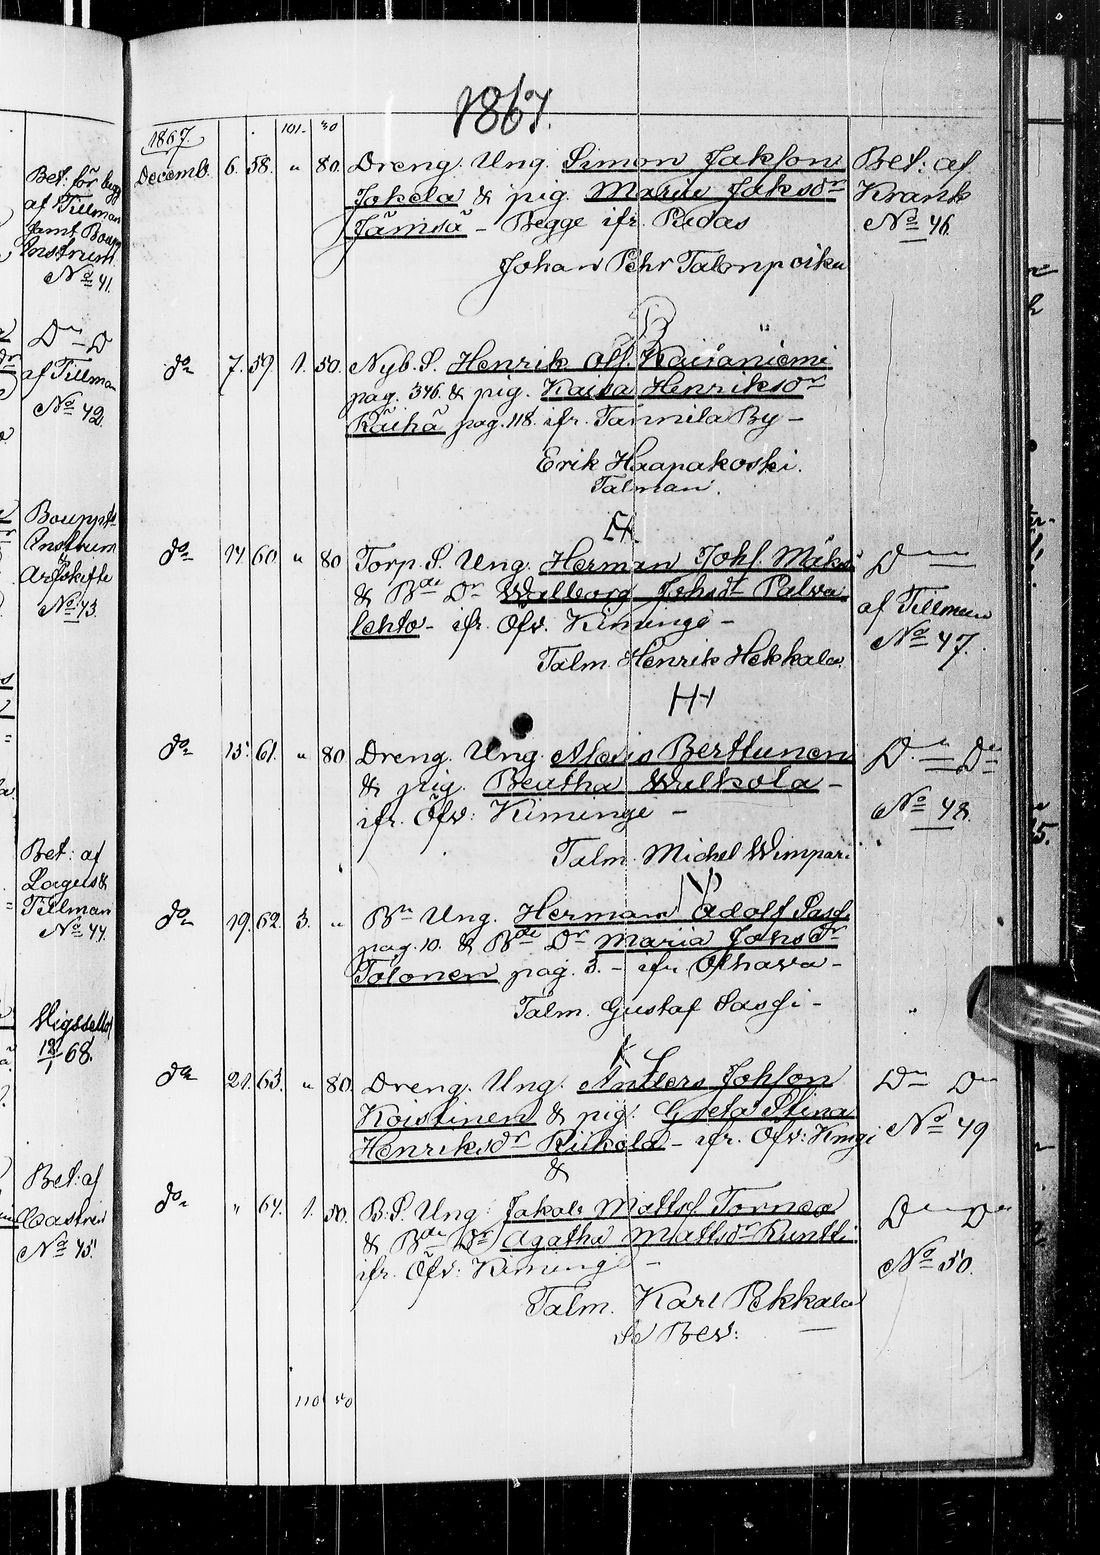 1867.
1867
101. 30
Bet: för bupp
af Tillman
samt Boupp
Instrum
No 41.
Dn D
af Tillman
No 42.
Boupptr
Instrum
Arfskifte
No 43.
Bet: af
Lagus &
Tillman
No 44.
Vigssedel
12/1 68.
Bet: af
Castrén
No 45.
Decemb. 6. 58. " 80. Dreng. Ung. Simon Jakson
Jokela & pig. Maria Jaksdr
Jämsä - Begge ifr. Pudas
Johan Pehr Talonpoika
Bet: af
Krank
No 46.
do 7. 59. 1. 50. Nyb. S. Henrik Olf. Kaisaniemi
pag. 346. & pig. Kaisa Henriksdr
Räihä pag. 118. ifr. Tannila By -
Erik Haapakoski.
Talman.
do 14. 60. " 80 Torp. S. Ung. Herman Johs. Mäki
& Bde Dr Walborg Johsdr Palva
lehto - ifr. Öfv. Kiminge -
Talm. Henrik Hekkala
D
af Tillman
No 47.
do 15. 61. " 80 Dreng. Ung. Alexis Berttunen
& pig. Beatha Walkola -
ifr. Öfv: Kiminge -
Talm. Michel Wimpari
D. Do
No 48.
do 19. 62. 3. " Bn Ung. Herman Adolf Sasi
pag. 10. & Bde Dr Maria Johsdr
Tolonen pag. 3. - ifr Olhava -
Talm. Gustaf Sassi -
do 21. 63. " 80. Dreng. Ung. Anders Johson
Koistinen & pig: Greta Stina
Henriksdr Riikola - ifr. Öfv: Kmgi
&
Dn Dn
No 49
do " 64. 1. 50. B.S. Ung: Jakob Matts. Tornea
& Bde Dr Agatha Mattsdr Runtti
ifr. Öfv: Kiminge -
Talm. Karl Pekkala
Dn Dn
No 50.
110 50